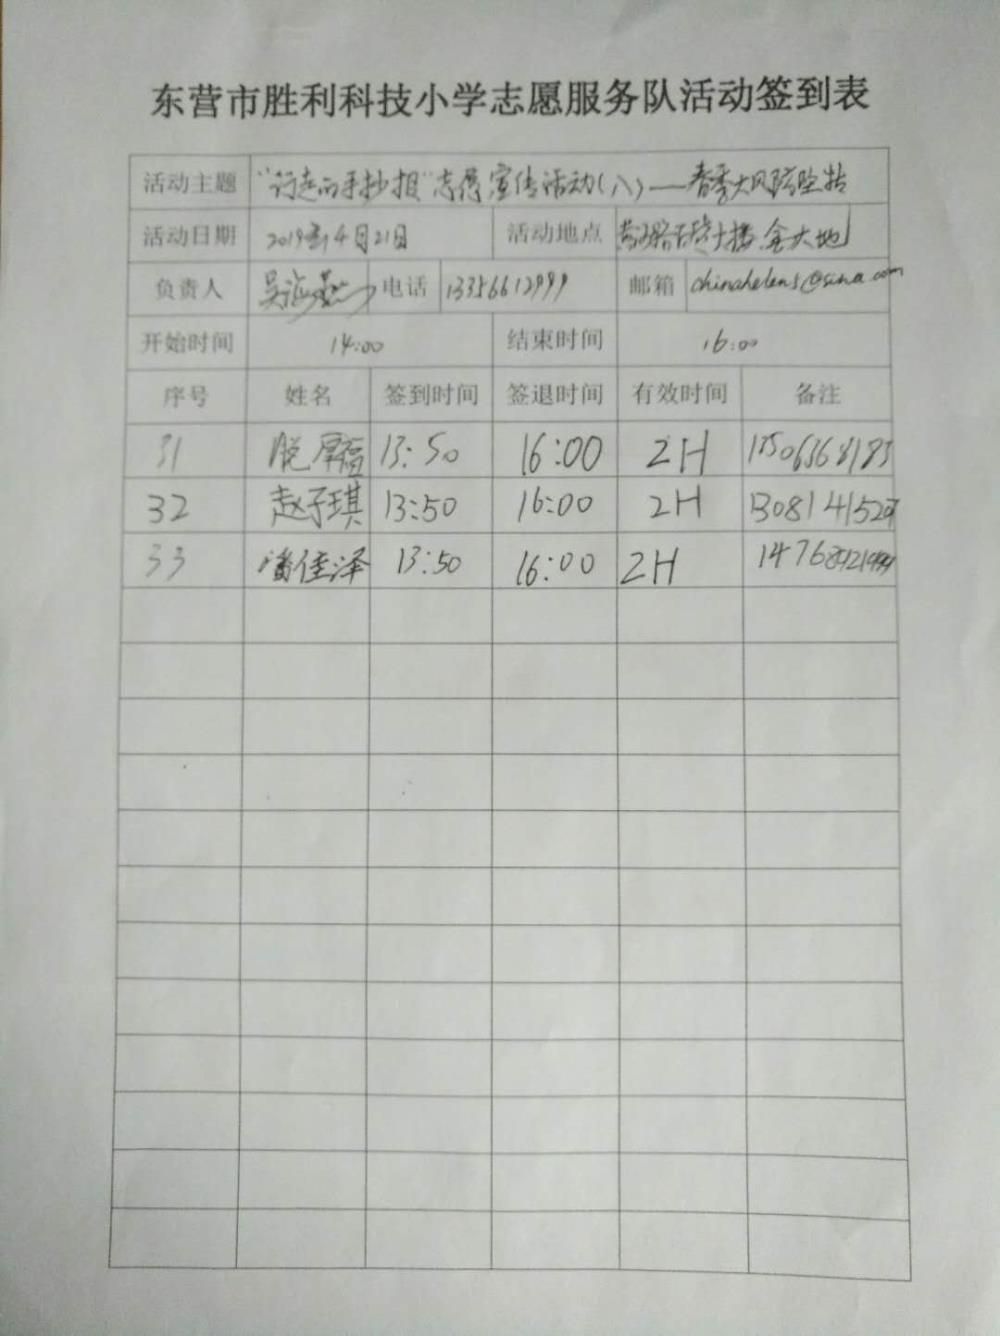 东营市胜利科技小学志愿服务队活动签到表
活动主题 “行走的手抄报”志愿宣传活动(八)——春季大风防坠物
活动日期 2019年4月21日 活动地点 大楼 金大地
负责人 吴 电话 13356612999 邮箱 chinahelens@sina.com
开始时间 14:00 结束时间 16:00
序号 姓名 签到时间 签退时间 有效时间 备注
31 13:50 16:00 2H
32 赵子琪 13:50 16:00 2H
33 潘佳泽 13:50 16:00 2H